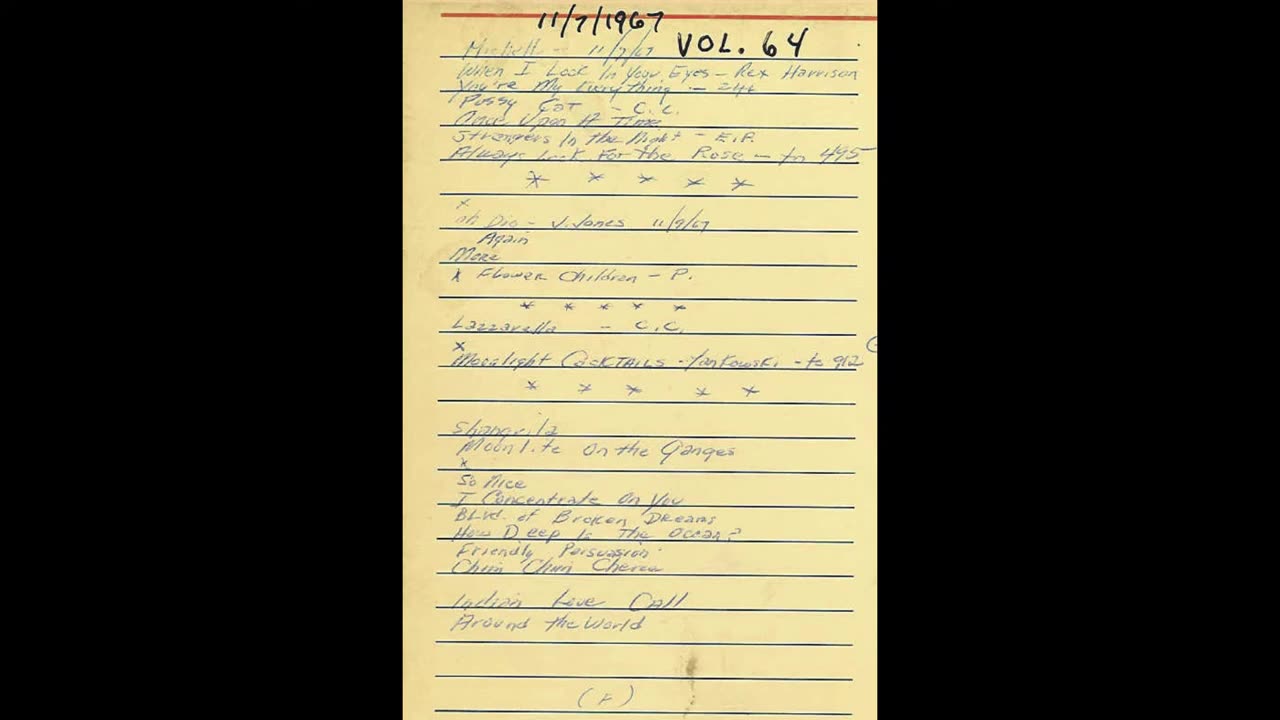 11/7/1967
VOL. 64
Michell - 11/7/67
When I Look In Your Eyes - Rex Harrison
You're My Everything -
Pussy Cat - C.C.
Once Upon A Time
Strangers In the Night - E.P.
Always Look For the Rose - to 495
* * * * *
x
oh Dio - J. Jones 11/9/67
Again
More
x Flower Children - P.
* * * * *
Lazzarella - C.C.
x
Moonlight Cocktails - Yankowski - to 912
* * * * *
Shangrila
Moonlite On the Ganges
x
So Nice
I Concentrate On You
Blvd. of Broken Dreams
How Deep Is the Ocean?
Friendly Persuasion
Chim Chim Cheree
Indian Love Call
Around the World
(F)